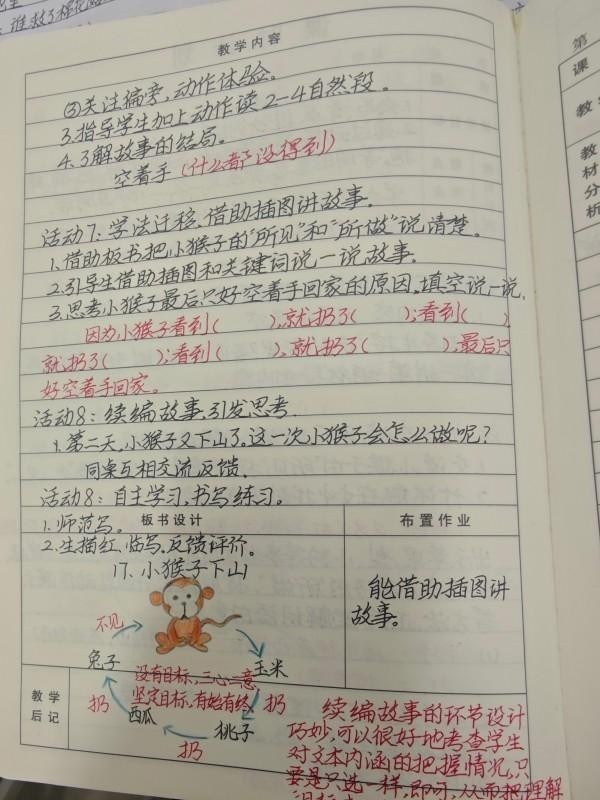 谁救了棉花
教学内容
③关注偏旁，动作体验。
3.指导学生加上动作读2-4自然段。
4.了解故事的结局。
空着手（什么都没得到）
活动7：学法迁移，借助插图讲故事。
1.借助板书把小猴子的"所见"和"所做"说清楚。
2.引导生借助插图和关键词说一说故事。
3.思考小猴子最后只好空着手回家的原因，填空说一说。
因为小猴子看到(　　),就扔了(　　);看到(　　)
就扔了(　　);看到(　　),就扔了(　　),最后只
好空着手回家。
活动8：续编故事，引发思考。
1.第二天，小猴子又下山了，这一次小猴子会怎么做呢？
同桌互相交流，反馈。
活动8：自主学习，书写练习。
1.师范写。
板书设计
布置作业
2.生描红、临写，反馈评价。
17.小猴子下山
能借助插图讲
故事。
不见
兔子
玉米
没有目标，三心二意
坚定目标，有始有终
扔
扔
西瓜
桃子
扔
教学
后记
续编故事的环节设计
巧妙，可以很好地考查学生
对文本内涵的把握情况，只
要是只选一样，即可，从而把理解
第
课
教
教
材
分
析